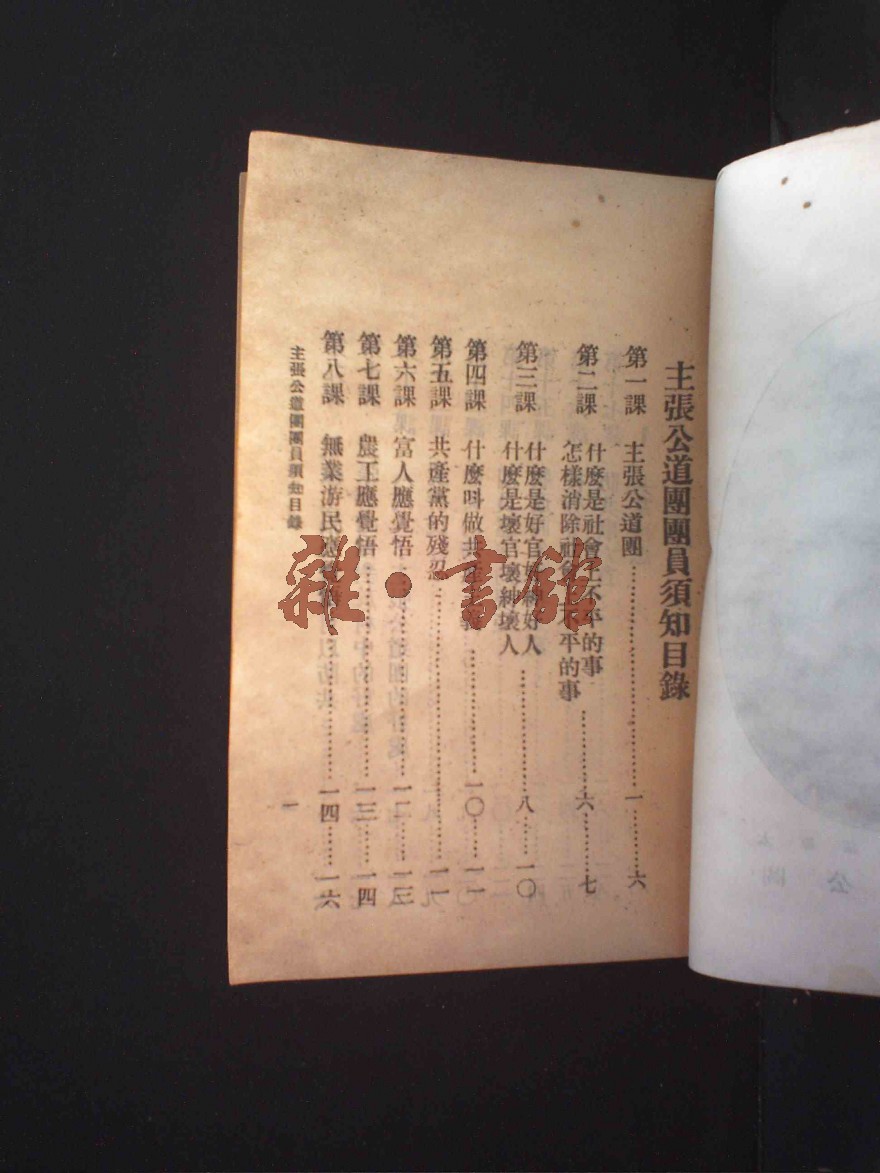 主張公道團團員須知目錄
第一課 主張公道團……………………一………六
第二課 什麼是社會上不平的事
怎樣消除社會不平的事……………六………七
第三課 什麼是好官好紳好人
什麼是壞官壞紳壞人……………八………一〇
第四課 什麼叫做共產……………一〇………一一
第五課 共產黨的殘忍……………………一一
第六課 富人應覺悟……………………一二………一三
第七課 農工應覺悟……………………一三………一四
第八課 無業游民應……………………一四………一六
主張公道團團員須知目錄
一
雜·書館